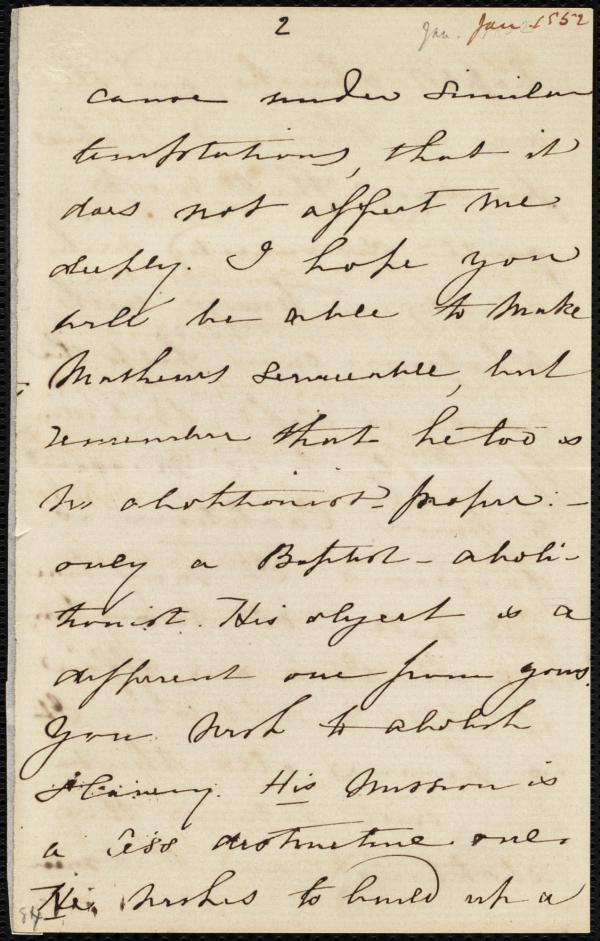 2
Jan. Jan 1852
cause under similar
temptations, that it
does not affect me
deeply. I hope you
will be able to make
Mathews serviceable, but
remember that he too is
no abolitionist proper: -
only a Baptist - aboli-
tionist. His object is a
different one from yours.
You wish to abolish
slavery. His mission is
a less destructive one.
He wishes to build up a